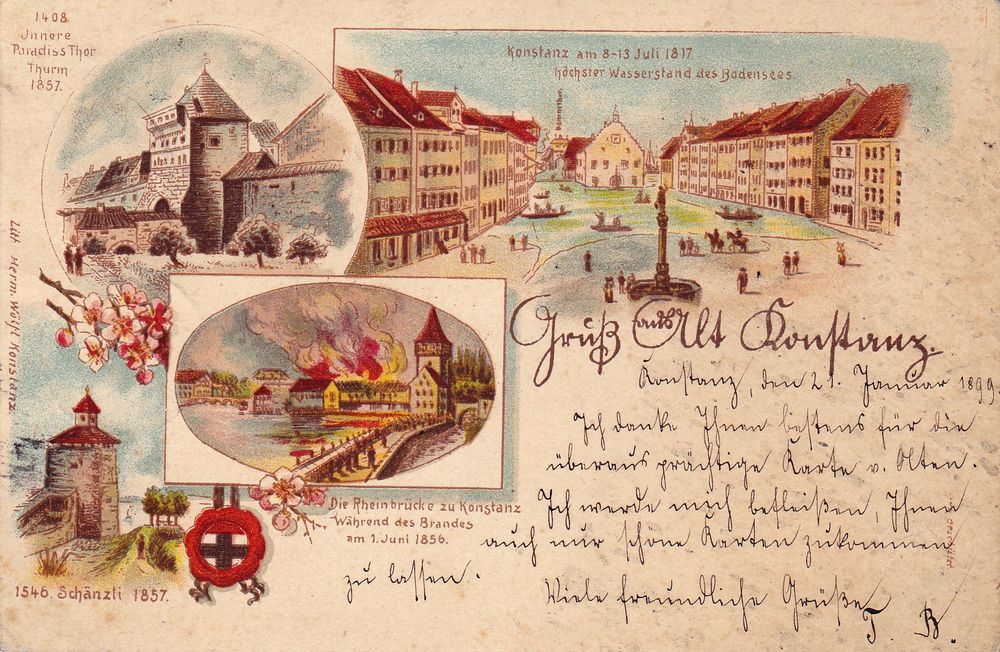 1408
Innere
Paradiss Thor
Thurm
1857.
Konstanz am 8-13 Juli 1817
höchster Wasserstand des Bodensees.
Gruß aus Alt Konstanz.
Konstanz, den 21. Januar 1899.
Ich danke Ihnen bestens für die
überaus prächtige Karte v. Olten.
Ich werde mich befleißen, Ihnen
auch nur schöne Karten zukommen
zu lassen.
Viele freundliche Grüße
T. B.
Die Rheinbrücke zu Konstanz
Während des Brandes
am 1. Juni 1856.
1546. Schänzli 1857.
Lith. Herm. Wolf Konstanz